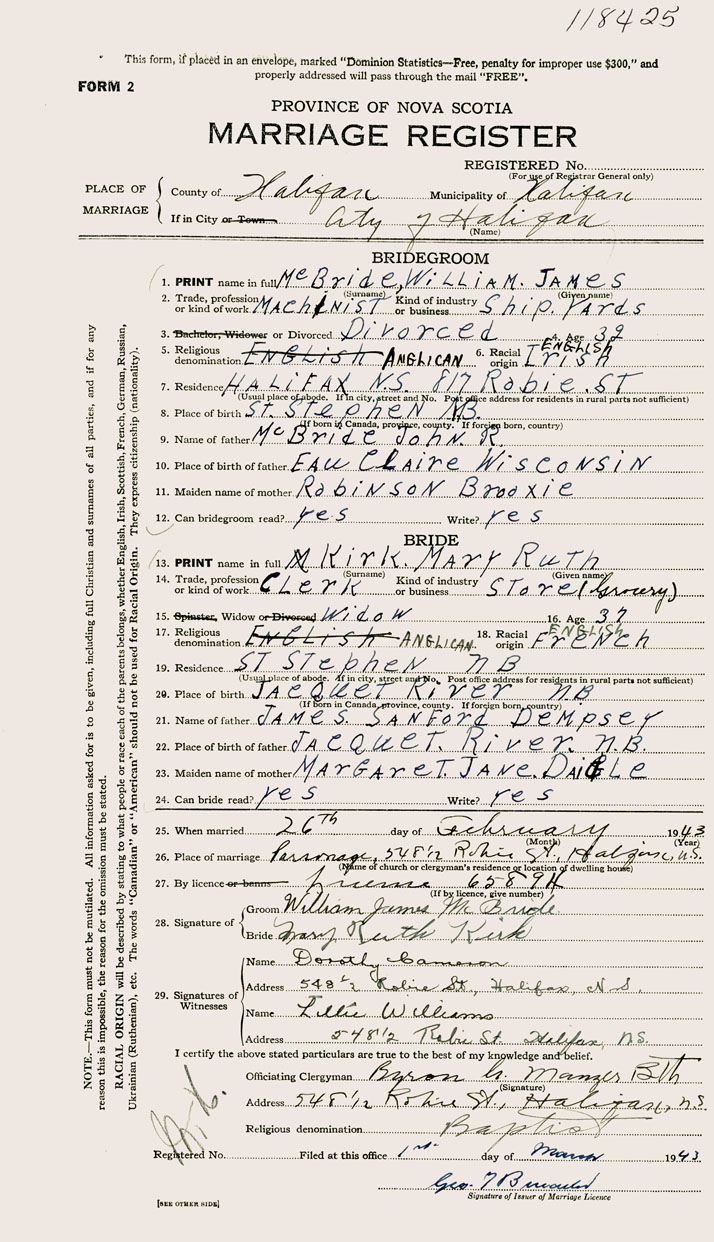 118425
This form, if placed in an envelope, marked "Dominion Statistics—Free, penalty for improper use $300," and
properly addressed will pass through the mail "FREE".
FORM 2
PROVINCE OF NOVA SCOTIA
MARRIAGE REGISTER
REGISTERED No.
(For use of Registrar General only)
PLACE OF MARRIAGE
County of Halifax Municipality of Halifax
If in City or Town City of Halifax
(Name)
BRIDEGROOM
1. PRINT name in full McBride, WILLIAM. JAMES
(Surname) (Given name)
2. Trade, profession or kind of work MACHINIST Kind of industry or business Ship. Yards
3. Bachelor, Widower or Divorced Divorced 4. Age 39
5. Religious denomination ENGLISH ANGLICAN 6. Racial origin Irish ENGLISH
7. Residence HALIFAX N.S. 817 Robie. ST
(Usual place of abode. If in city, street and No. Post office address for residents in rural parts not sufficient)
8. Place of birth St. Stephen N.B.
(If born in Canada, province, county. If foreign born, country)
9. Name of father McBride John R.
10. Place of birth of father EAU CLaire WiSCONSIN
11. Maiden name of mother Robinson Brooxie
12. Can bridegroom read? yes Write? yes
BRIDE
13. PRINT name in full Kirk. Mary Ruth
(Surname) (Given name)
14. Trade, profession or kind of work CLerk Kind of industry or business STore (Grocery)
15. Spinster, Widow or Divorced Widow 16. Age 37
17. Religious denomination ENGLISH ANGLICAN 18. Racial origin French ENGLISH
19. Residence ST Stephen NB
(Usual place of abode. If in city, street and No. Post office address for residents in rural parts not sufficient)
20. Place of birth Jacquet River NB
(If born in Canada, province, county. If foreign born, country)
21. Name of father JAMES SANFord Dempsey
22. Place of birth of father Jacquet. River. N.B.
23. Maiden name of mother MARGAreT. JANE. DAIGLe
24. Can bride read? yes Write? yes
25. When married 26th day of February 1943
(Month) (Year)
26. Place of marriage Parsonage, 548½ Robie St., Halifax, N.S.
(Name of church or clergyman's residence or location of dwelling house)
27. By licence or banns license 6589H
(If by licence, give number)
28. Signature of
Groom William James McBride
Bride Mary Ruth Kirk
29. Signatures of Witnesses
Name Dorothy Cameron
Address 548½ Robie St., Halifax, N.S.
Name Lillie Williams
Address 548½ Robie St. Halifax, N.S.
I certify the above stated particulars are true to the best of my knowledge and belief.
Officiating Clergyman Byron G. Manzer BTh
(Signature)
Address 548½ Robie St., Halifax, N.S.
Religious denomination Baptist
Registered No. Filed at this office 1st day of March 1943
Geo.
Signature of Issuer of Marriage Licence
[SEE OTHER SIDE]
NOTE.—This form must not be mutilated. All information asked for is to be given, including full Christian and surnames of all parties, and if for any
reason this is impossible, the reason for the omission must be stated.
RACIAL ORIGIN will be described by stating to what people or race each of the parents belongs, whether English, Irish, Scottish, French, German, Russian,
Ukrainian (Ruthenian), etc. The words "Canadian" or "American" should not be used for Racial Origin. They express citizenship (nationality).